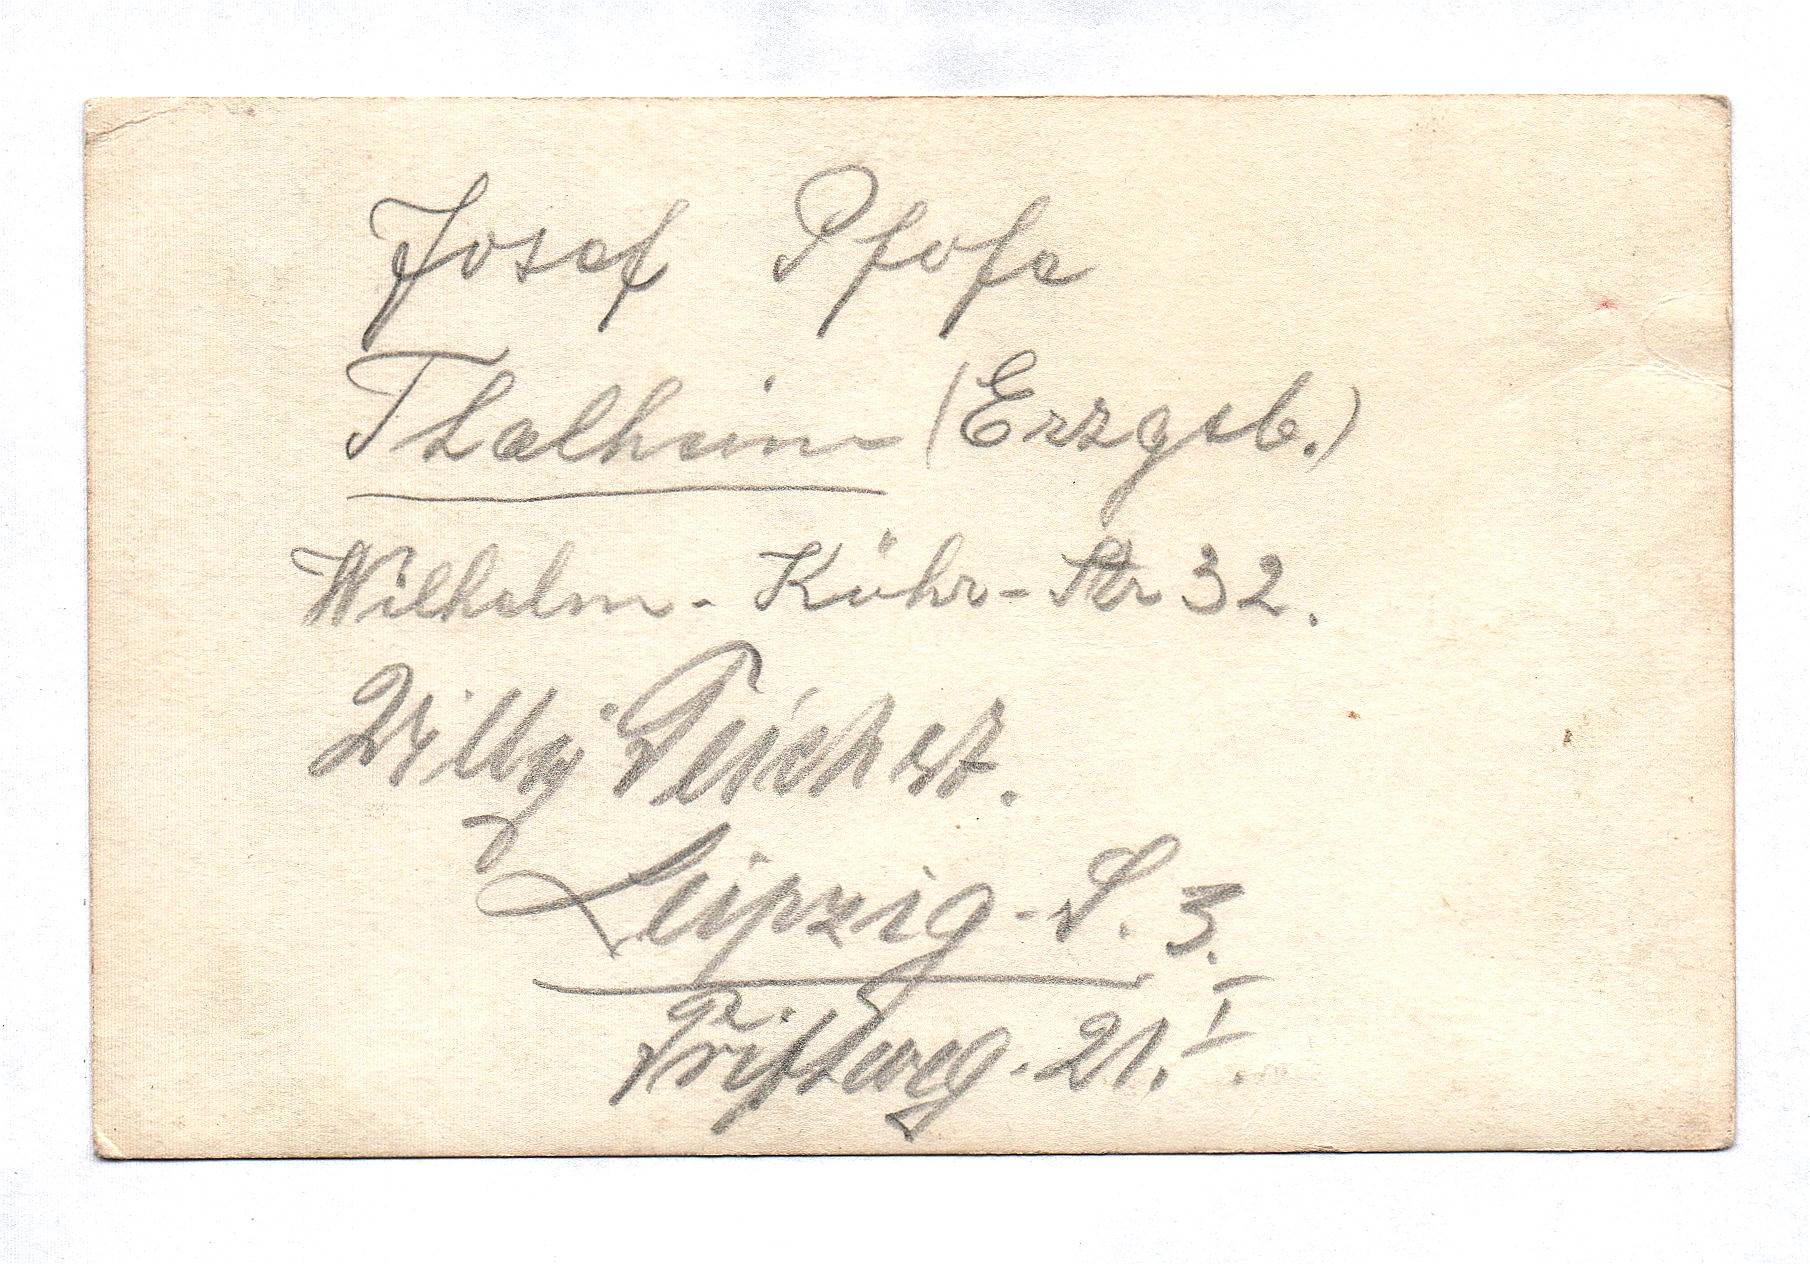 Josef Pfofe
Thalheim (Erzgeb.)
Wilhelm-Kühr-Str 32.
Willy Teichert.
Leipzig-S. 3.
Triftweg. 21. I.